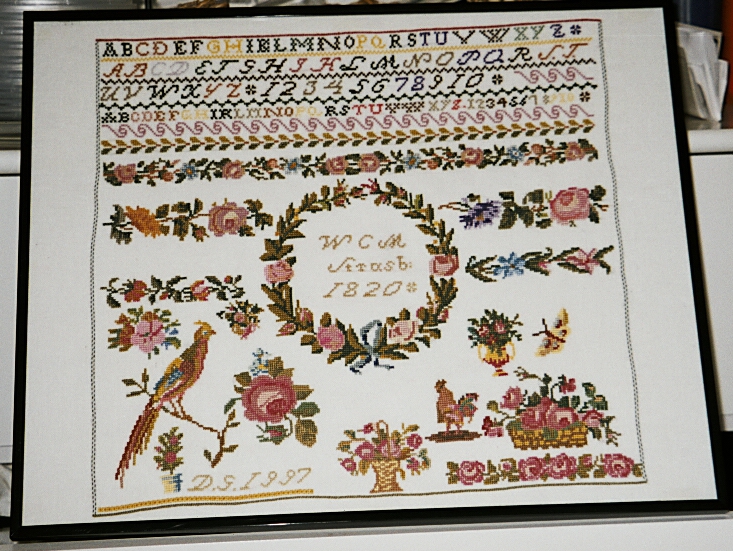 ABCDEFGHIKLMNOPQRSTUVWXYZ
ABCDEFGHIKLMNOPQRST
UVWXYZ*1234567891O
ABCDEFGHIKLMNOPQRSTUVWXYZ.12345678910
WCM
Strasb:
1820*
D.G.1997